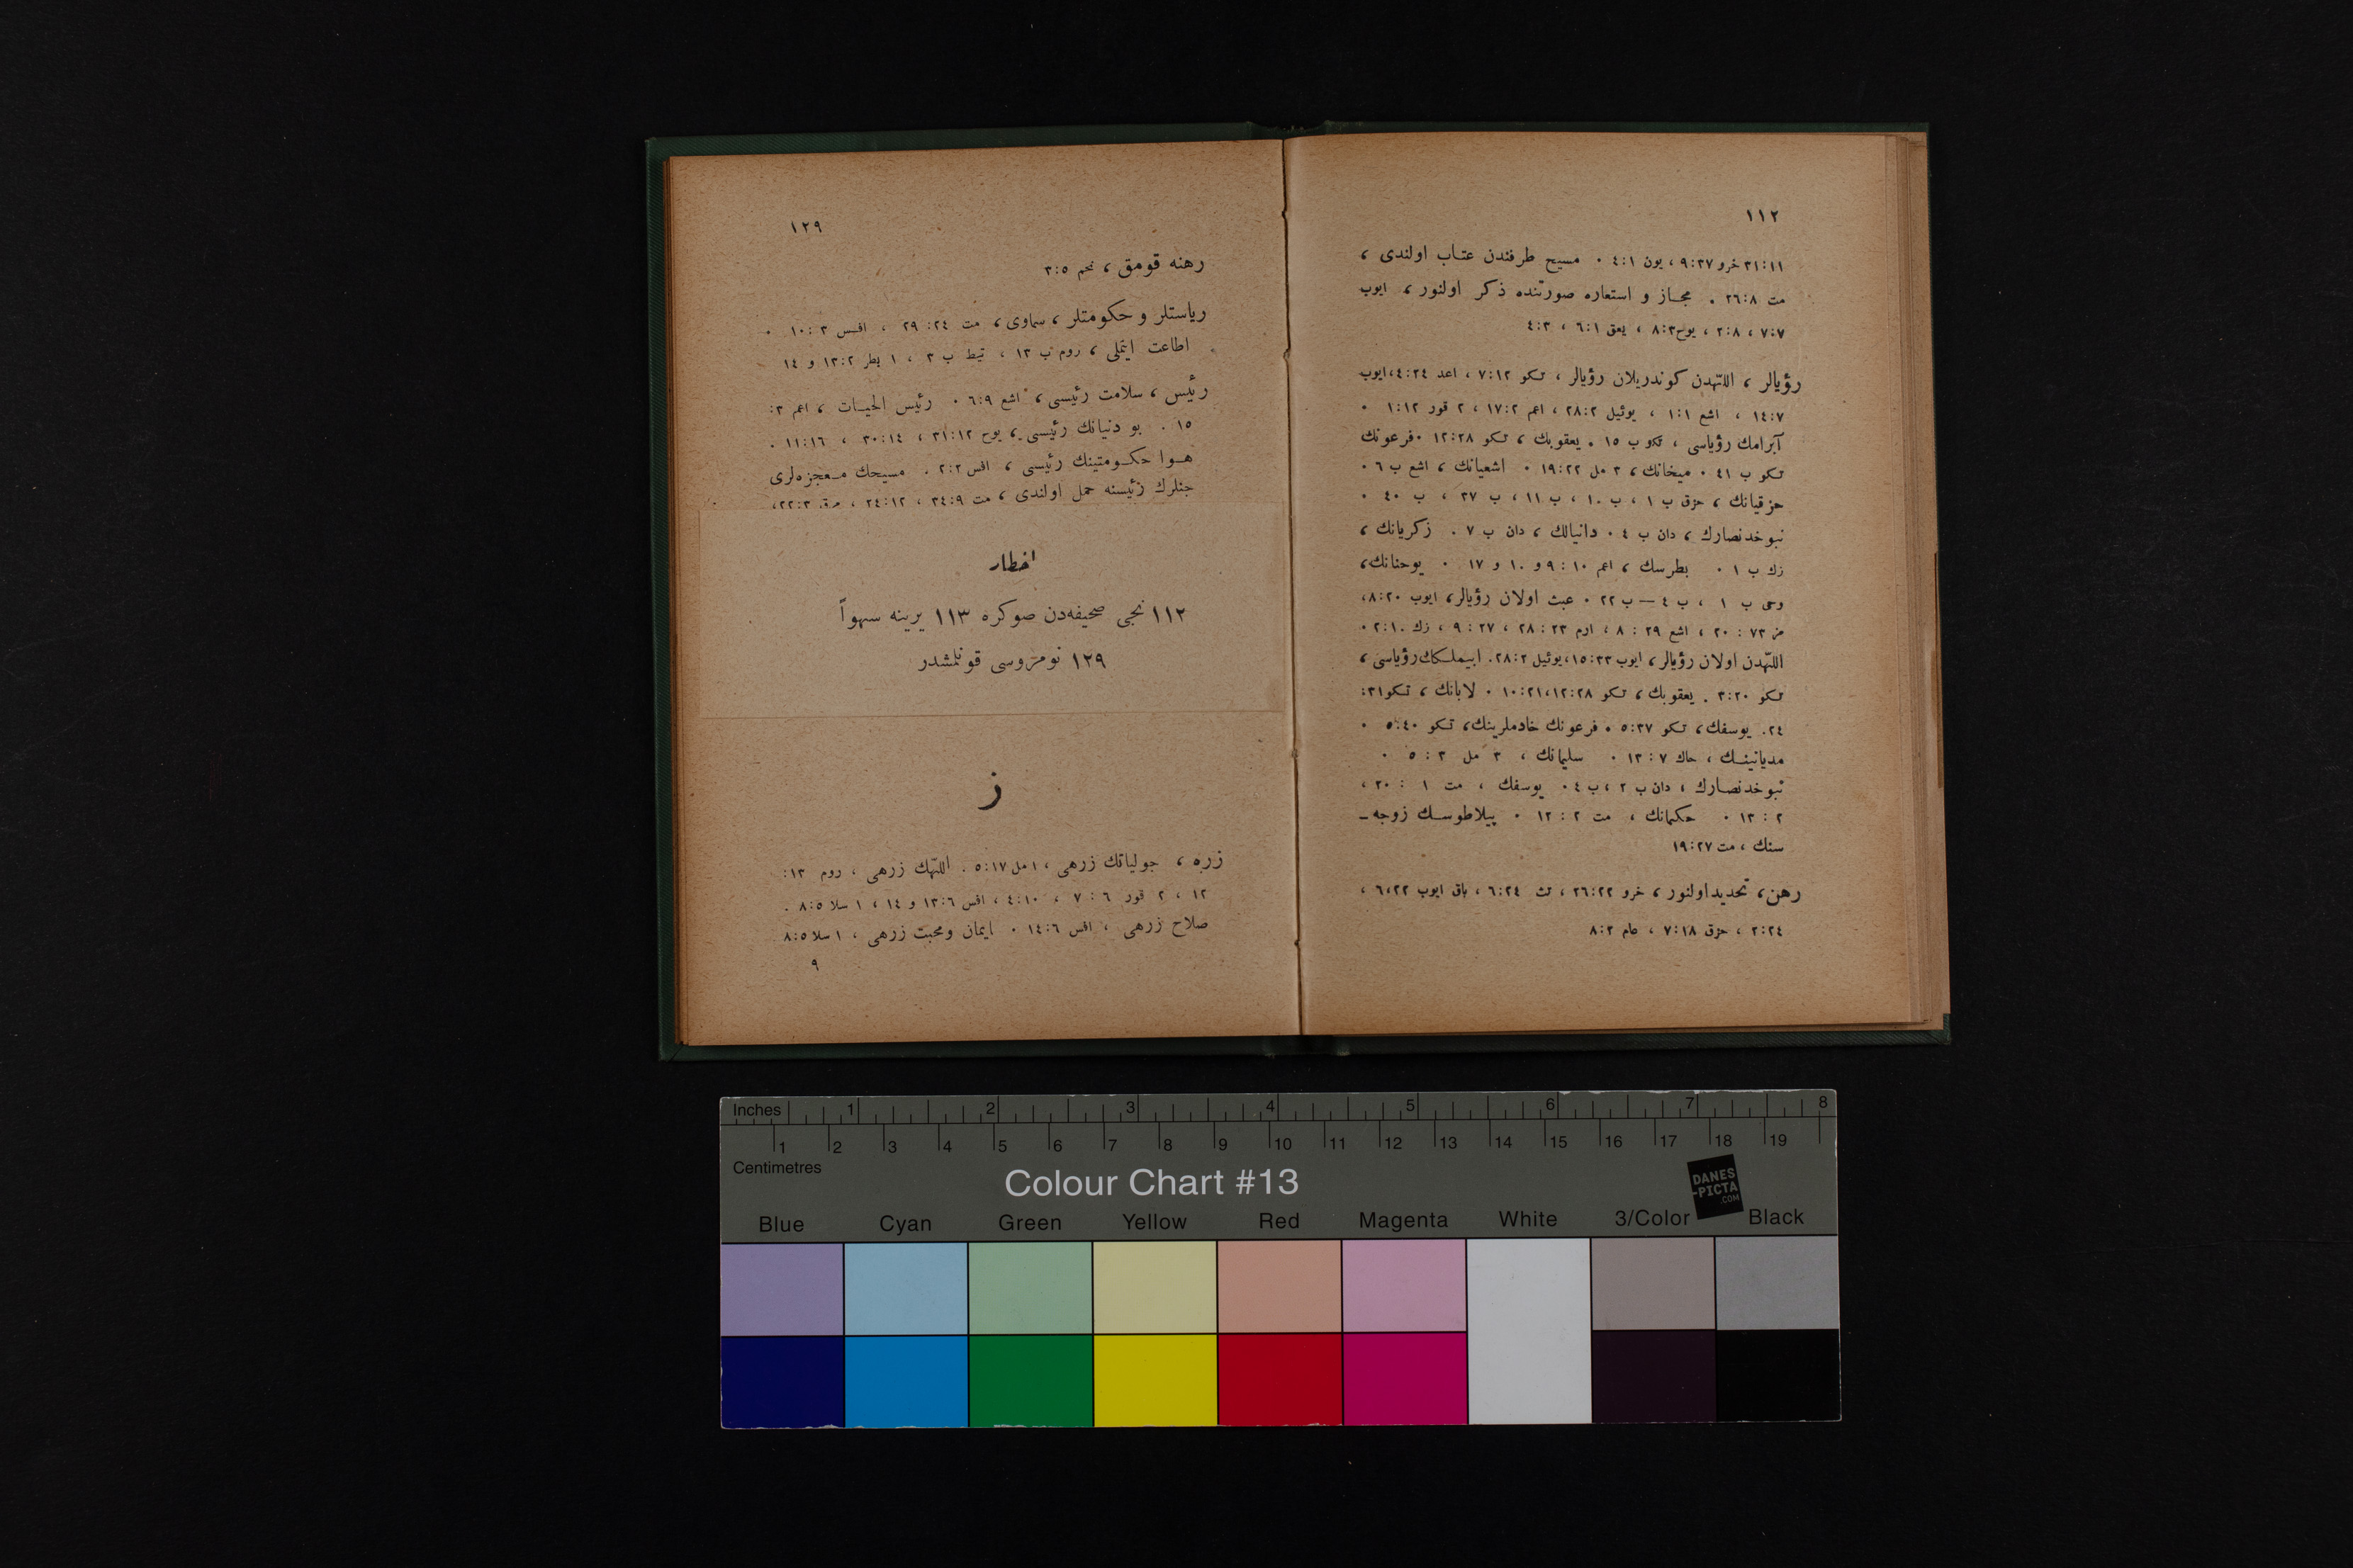 ١١٢
٣١:١١ خرو ٩:٣٧ ، يون ٤:١ ٠ مسيح طرفندن عتاب اولندى ،
مت ٢٦:٨ ٠ مجاز و استعاره صورتنده ذكر اولنور ، ايوب
٧:٧ ، ٢:٨ ، يوح ٨:٣ ، يعق ٦:١ ، ٤:٣
رؤيالر ، اللّٰهدن كوندريلان رؤيالر ، تكو ٧:١٢ ، اعد ٤:٢٤ ، ايوب
١٤:٧ ، اشع ١:١ ، يوئيل ٢٨:٢ ، اعم ١٧:٢ ، ٢ قور ١:١٢ ٠
آبرامك رؤياسى ، تكو ب ١٥ ٠ يعقوبك ، تكو ١٢:٢٨ ٠ فرعونك
تكو ب ٤١ ٠ ميخانك ، ٣ مل ١٩:٢٢ ٠ اشعيانك ، اشع ب ٦ ٠
حزقيانك ، حزق ب ١ ، ب ١٠ ، ب ١١ ، ب ٣٧ ، ب ٤٠ ٠
نبوخدنصارك ، دان ب ٤ ٠ دانيالك ، دان ب ٧ ٠ زكريانك ،
زك ب ١ ٠ بطرسك ، اعم ١٠ : ٩ و ١٠ و ١٧ ٠ يوحنانك ،
وحى ب ١ ، ب ٤ — ب ٢٢ ٠ عبث اولان رؤيالر ، ايوب ٨:٢٠ ،
مز ٧٣ : ٢٠ ، اشع ٢٩ : ٨ ، ارم ٢٣ : ٢٨ ، ٢٧ : ٩ ، زك ٢:١٠ ٠
اللّٰهدن اولان رؤيالر ، ايوب ١٥:٣٣ ، يوئيل ٢٨:٢ ٠ ابيملكك رؤياسى ،
تكو ٣:٢٠ ٠ يعقوبك ، تكو ١٢:٢٨ ، ١٠:٢١ ٠ لابانك ، تكو ٣١:
٢٤ ٠ يوسفك ، تكو ٥:٣٧ ٠ فرعونك خادملرينك ، تكو ٥:٤٠ ٠
مديانينك ، حاك ٧ : ١٣ ٠ سليمانك ، ٣ مل ٣ : ٥ ٠
نبوخدنصارك ، دان ب ٢ ، ب ٤ ٠ يوسفك ، مت ١ : ٢٠ ،
٢ : ١٣ ٠ حكمانك ، مت ٢ : ١٢ ٠ پيلاطوسك زوجه ـ
سنك ، مت ١٩:٢٧
رهن ، تحديد اولنور ، خرو ٢٦:٢٢ ، تث ٦:٢٤ ، باق ايوب ٦،٢٢ ،
٢:٢٤ ، حزق ٧:١٨ ، عام ٨:٢
١٢٩
رهنه قومق ، نحم ٣:٥
رياستلر و حكومتلر ، سماوى ، مت ٢٤ : ٢٩ ، افسس ٣ : ١٠ ٠
اطاعت ايتملى ، روم ب ١٣ ، تيط ب ٣ ، ١ بطر ١٣:٢ و ١٤
رئيس ، سلامت رئيسى ، اشع ٦:٩ ٠ رئيس الحيات ، اعم ٣ :
١٥ ٠ بو دنيانك رئيسى ، يوح ٣١:١٢ ، ٣٠:١٤ ، ١١:١٦ ٠
هوا حكومتينك رئيسى ، افس ٢:٢ ٠ مسيحك معجزه‌لرى
جنلرك رئيسنه حمل اولندى ، مت ٣٤:٩ ، ٢٤:١٢ ، مرق ٢٢:٣ ،
اخطار
١١٢ نجى صحيفه‌دن صوكره ١١٣ يرينه سهواً
١٢٩ نومروسى قونلمشدر
ز
زره ، جولياتك زرهى ، ١ مل ٥:١٧ ٠ اللّٰهك زرهى ، روم ١٣ :
١٢ ، ٢ قور ٦ : ٧ ، ٤:١٠ ، افس ١٣:٦ و ١٤ ، ١ سلا ٨:٥ ٠
صلاح زرهى ، افس ١٤:٦ ٠ ايمان ومحبت زرهى ، ١ سلا ٨:٥
٩
Inches 1 2 3 4 5 6 7 8
1 2 3 4 5 6 7 8 9 10 11 12 13 14 15 16 17 18 19
Centimetres
Colour Chart #13
DANES
-PICTA
.COM
Blue Cyan Green Yellow Red Magenta White 3/Color Black